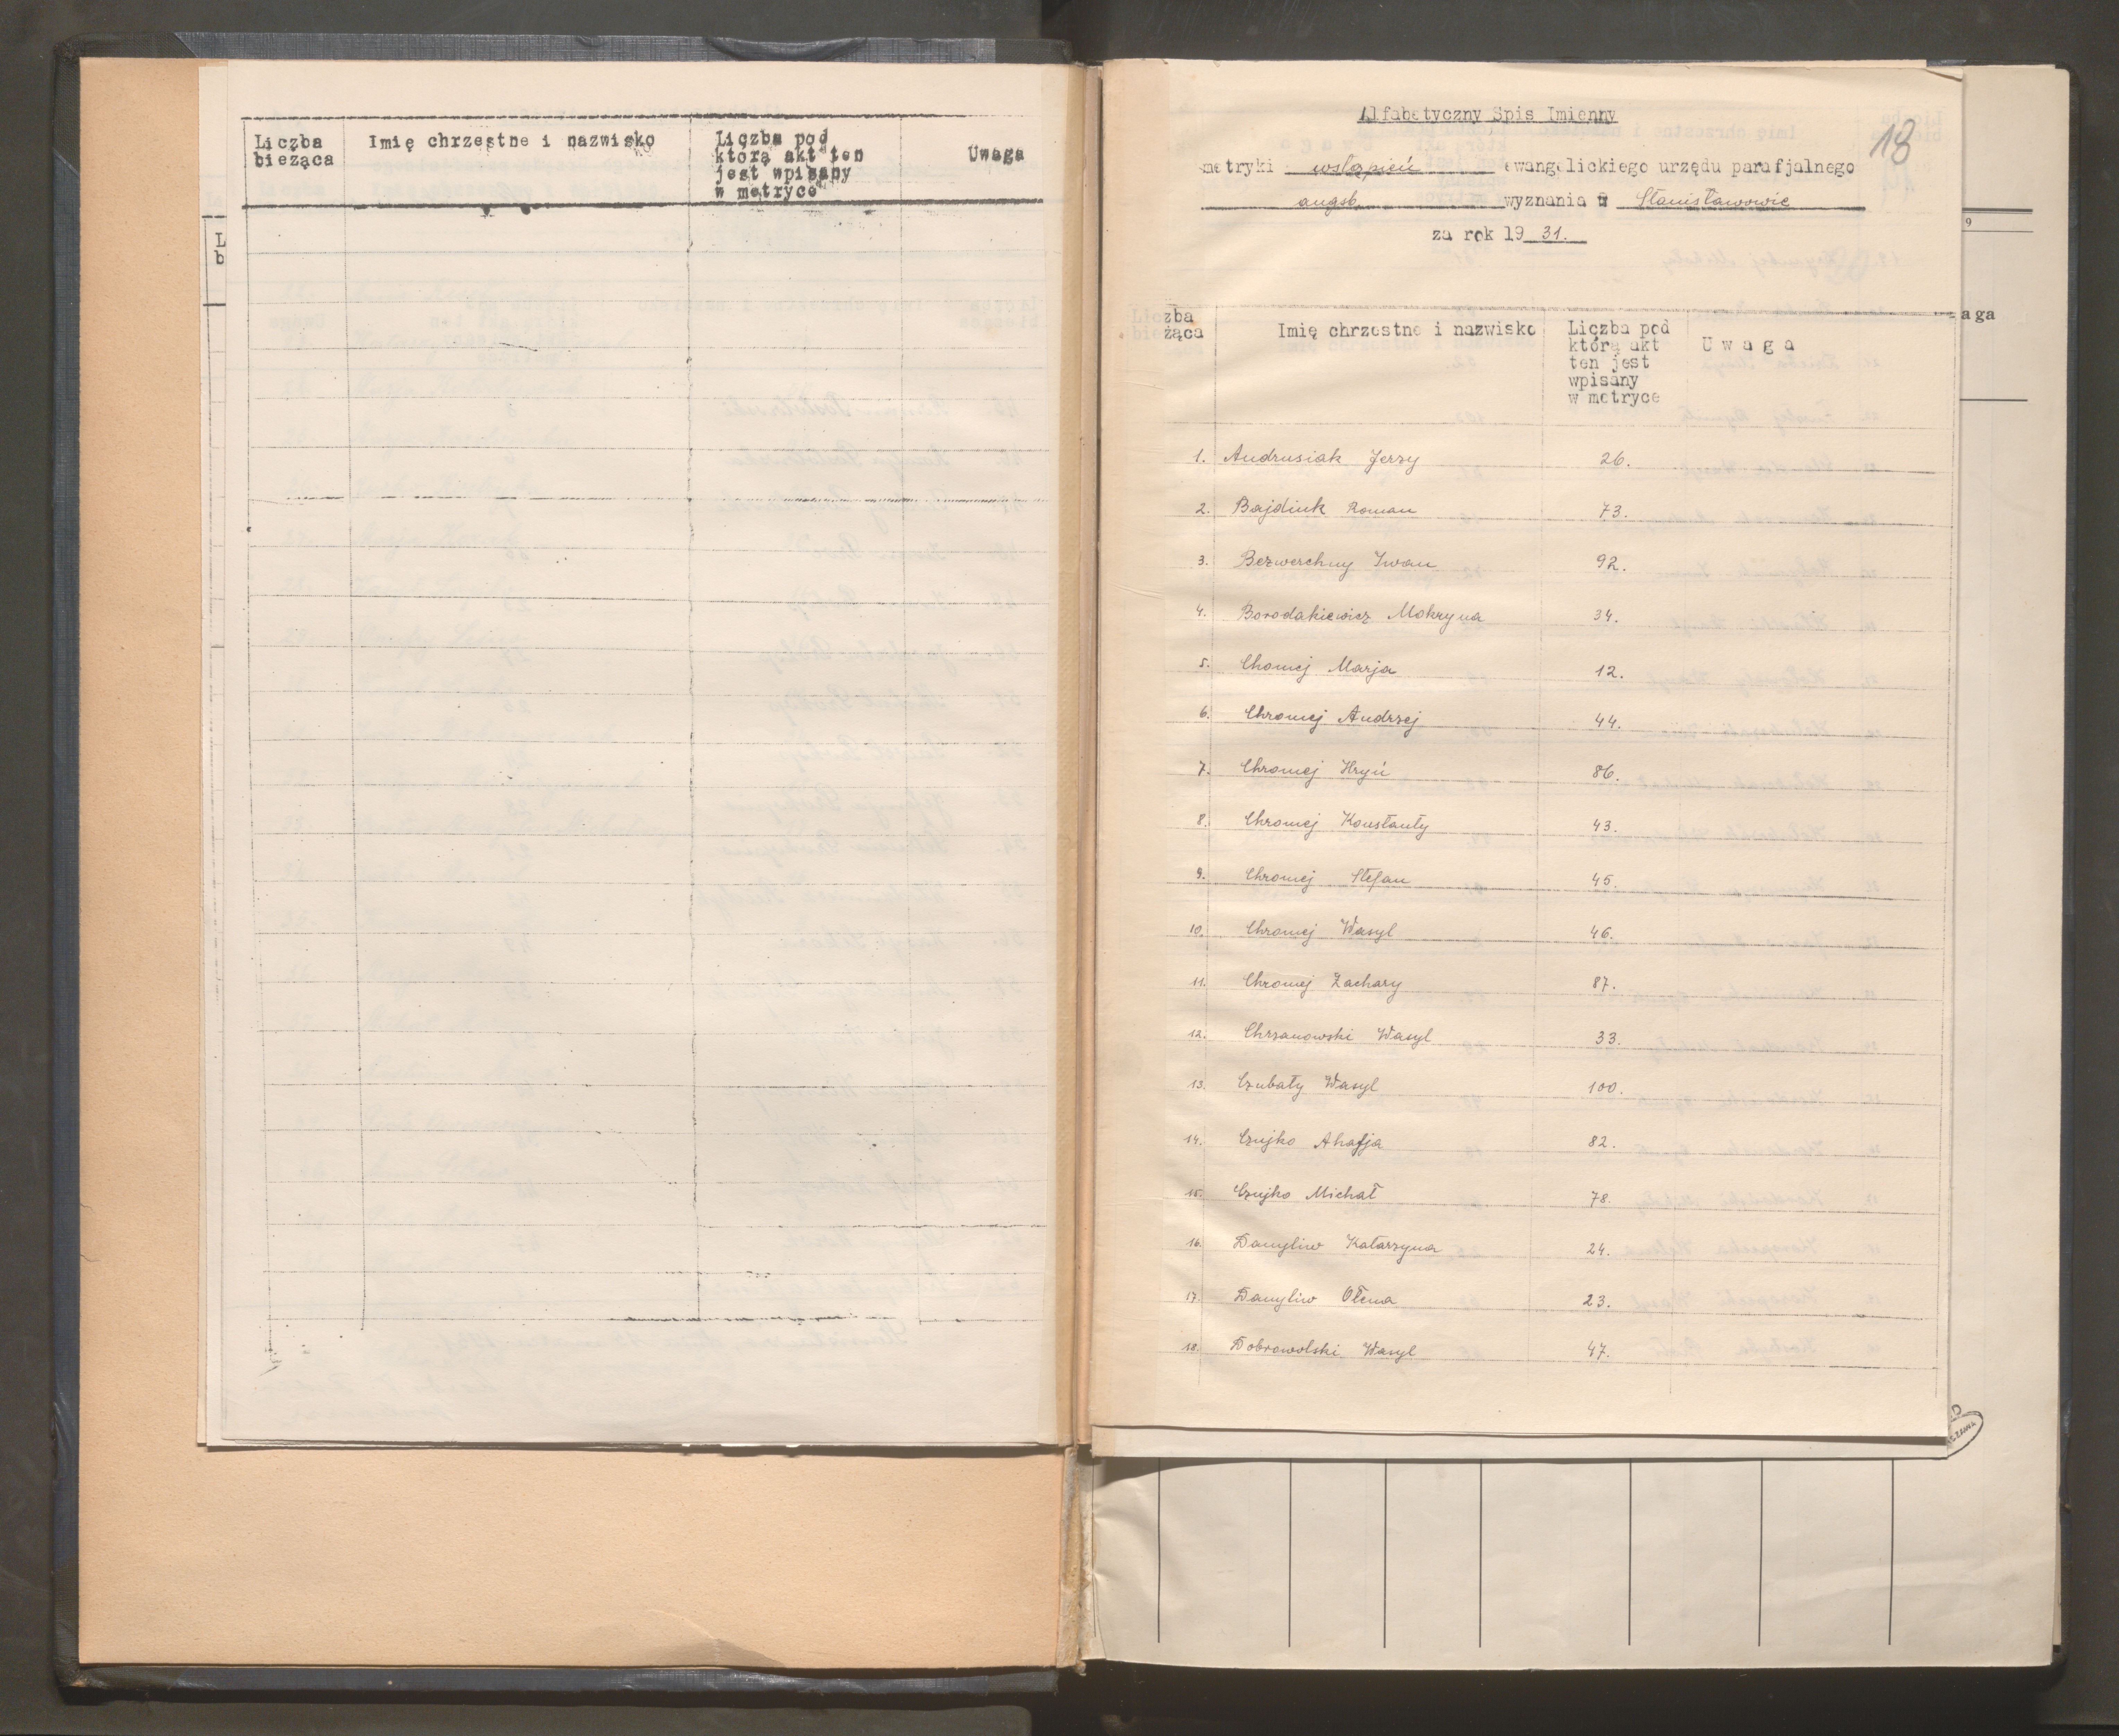 Liczba bieżąca
Imię chrzestne i nazwisko
Liczba pod którą akt ten jest wpisany w metryce
Uwaga
L
b
Alfabetyczny Spis Imienny
18
metryki wstąpień ewangelickiego urzędu parafjalnego
augsb. wyznania w Stanisławowie
za rok 19 31.
Liczba bieżąca
Imię chrzestne i nazwisko
Liczba pod którą akt ten jest wpisany w metryce
U w a g a
1. Andrusiak Jerzy 26.
2. Bajdiuk Roman 73.
3. Bezwerchny Iwan 92.
4. Borodakiewicz Mokryna 34.
5. Chomej Marja 12.
6. Chromej Andrzej 44.
7. Chromej Hryń 86.
8. Chromej Konstanty 43.
9. Chromej Stefan 45.
10. Chromej Wasyl 46.
11. Chromej Zachary 87.
12. Chrzanowski Wasyl 33.
13. Czubaty Wasyl 100.
14. Czujko Ahafja 82.
15. Czujko Michał 78.
16. Danyliw Katarzyna 24.
17. Danyliw Ołena 23.
18. Dobrowolski Wasyl 47.
9
aga